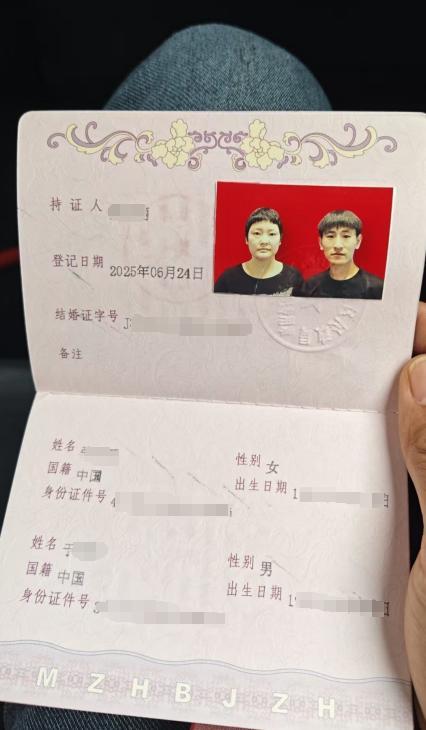 持证人
登记日期 2025年06月24日
结婚证字号 J
备注
姓名
性别 女
国籍 中国
出生日期 1
身份证件号 4
姓名 于
性别 男
国籍 中国
出生日期 1
身份证件号 3
MZHBJZH